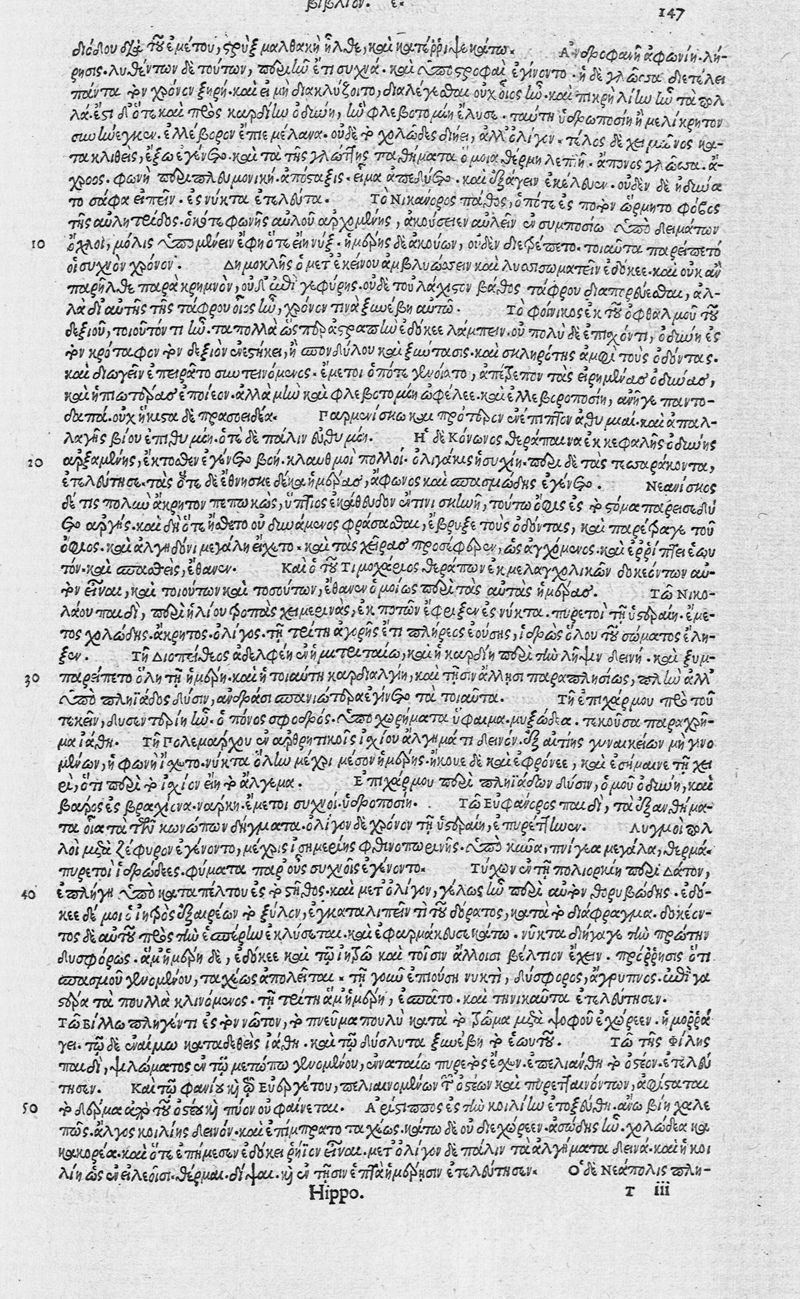 βιβλίον. ε.
147
διόδου διὰ τοῦ ἐμέτου, τρὺξ μαλθακὴ ἦλθε, καὶ κατέῤῥιψε κάτω. Ἀνδροφανῆ ἀφωνίη. λή-
ρησις. λυθέντων δὲ τούτων, περιῆν ἔτι συχνά. καὶ ὑποστροφαὶ ἐγίνοντο. ἡ δὲ γλῶσσα διετέλει
πάντα τὸν χρόνον ξηρή. καὶ εἰ μὴ διακλύζοιτο, διαλέγεσθαι οὐχ οἷος ἦν. καὶ πικρὴ λίην ἦν τὰ πολ
λά. ἔστι δ' ὅτε καὶ πρὸς καρδίην ὀδύνη, ἣν φλεβοτομίη ἔλυσε. ταύτῃ ὑδροποσίη ἢ μελίκρητον
συνήνεγκεν. ἐλλέβορον ἔπιε μέλανα. οὐδὲ τὸ χολῶδες διῄει, ἀλλ' ὀλίγον. τέλος δὲ χειμῶνος κα-
τακλιθεὶς, ἔξω ἐγένετο. καὶ τὰ τῆς γλώττης παθήματα ὅμοια. θερμὴ λεπτή. ἄπονος γλῶσσα. ἄ-
χροος. φωνὴ περιπλευμονική. ἀπόταξις. εἷμα ἀπεδύετο. καὶ ἐξάγειν ἐκέλευεν. οὐδὲν δὲ ἠδύνα
το σάφα εἰπεῖν. ἐς νύκτα ἐτελεύτα. Τὸ Νικάνορος πάθος, ὁπότε ἐς ποτὸν ὥρμητο φόβος
τῆς αὐλητρίδος. ὁκότε φωνῆς αὐλοῦ ἀρχομένης, ἀκούσειεν αὐλεῖν ἐν συμποσίῳ ὑπὸ δειμάτων
10 ὄχλοι, μόλις ὑπομένειν ἔφη ὅτε εἴη νύξ. ἡμέρης δὲ ἀκούων, οὐδὲν διετρέπετο. τοιαῦτα παρείπετό
οἱ συχνὸν χρόνον. Δημοκλῆς ὁ μετ' ἐκείνου ἀμβλυώσσειν καὶ λυσισωματεῖν ἐδόκεε. καὶ οὐκ ἂν
παρῆλθε παρὰ κρημνὸν, οὐδ' ἐπὶ γεφύρης. οὐδὲ τοὐλάχιστον βάθος τάφρου διαπορεύεσθαι, ἀλ-
λὰ δι' αὐτῆς τῆς τάφρου οἷος ἦν, χρόνον τινὰ ξυνέβη αὐτῷ. Τὸ φοίνικος ἐκ τοῦ ὀφθαλμοῦ τοῦ
δεξιοῦ, τοιοῦτόν τι ἦν. τὰ πολλὰ ὥσπερ ἀστραπὴν ἐδόκεε λάμπειν. οὐ πολὺ δὲ ἐπισχόντι, ὀδύνη ἐς
τὸν κρόταφον τὸν δεξιὸν ἐνεστήκει, ἢ σπονδύλου καὶ ξύντασις. καὶ σκληρότης ἀμφὶ τοὺς ὀδόντας.
καὶ διοίγειν ἐπειρᾶτο συντεινόμενος. ἔμετοι ὁπότε γένοιατο, ἀπέτρεπον τὰς εἰρημένας ὀδύνας,
καὶ ἠπιωτέρας ἐποίεον. ἀλλὰ μὴν καὶ φλεβοτομίη ὠφέλεε. καὶ ἐλλεβοροποσίη, ἀνῆγε παντο-
δαπά. οὐχ ἥκιστα δὲ πρασοειδέα. Παρμενίσκῳ καὶ πρότερον ἐνέπιπτον ἀθυμίαι. καὶ ἀπαλ-
λαγῆς βίου ἐπιθυμίη. ὁτὲ δὲ πάλιν εὐθυμίη. Ἡ δὲ Κόνωνος θεράπαινα ἐκ κεφαλῆς ὀδύνης
20 ἀρξαμένης, ἔκτοθεν ἐγένετο βοή. κλαυθμοὶ πολλοί. ὀλιγάκις ἡσυχίη. περὶ δὲ τὰς τεσσαράκοντα,
ἐτελεύτησε. τὰς ὅτε δὲ ἔθνησκε δέκα ἡμέρας, ἄφωνος καὶ σπασμώδης ἐγένετο. Νεανίσκος
δέ τις πολὺν ἄκρητον πεπωκὼς, ὕπτιος ἐκάθευδον ἔν τινι σκηνῇ, τούτῳ ὄφις ἐς τὸ στόμα παρεισεδύε
το ἀργής. καὶ δὴ ὅτε ᾔσθετο οὐ δυνάμενος φράσασθαι, ἔβρυξε τοὺς ὀδόντας, καὶ παρέφαγε τοῦ
ὄφιος. καὶ ἀλγηδόνι μεγάλῃ εἴχετο. καὶ τὰς χεῖρας προσέφερεν, ὡς ἀγχόμενος. καὶ ἐῤῥίπτει ἑωυ
τόν. καὶ σπασθεὶς, ἔθανεν. Καὶ ὁ τοῦ Τιμοχάριος θεράπων ἐκ μελαγχολικῶν δοκεόντων αὐ-
τὸν εἶναι, καὶ τοιούτων καὶ τοσούτων, ἔθανεν ὁμοίως περὶ τὰς αὐτὰς ἡμέρας. Τῷ Νικο-
λάου παιδὶ, περὶ ἡλίου τροπὰς χειμερινὰς, ἐκ ποτῶν ἔφριξεν ἐς νύκτα. πυρετοὶ τῇ ὑστεραίῃ. ἔμε-
τος χολώδης. ἄκρητος. ὀλίγος. τῇ τρίτῃ ἀγορῆς ἔτι πλήρεος ἐούσης, ἱδρὼς ὅλου τοῦ σώματος ἔλη-
ξεν. Τῇ Διοπείθεος ἀδελφέῃ ἐν ἡμιτριταίῳ, καὶ ἡ καρδίη περὶ τὴν λῆψιν δεινή. καὶ ξυμ-
30 παρείπετο ὅλῃ τῇ ἡμέρῃ. καὶ ἡ τοιαύτη καρδιαλγίη, καὶ τῇσιν ἄλλῃσι παραπλησίως, πλὴν ἀλλ'
ὑπὸ πληϊάδος δύσιν, ἀνδράσι σπανιώτερα ἐγένετο τὰ τοιαῦτα. Τῇ ἐπιχάρμου πρὸ τοῦ
τεκεῖν, δυσεντερίη ἦν. ὁ πόνος σφοδρός. ὑποχωρήματα ὕφαιμα. μυξώδεα. τεκοῦσα παραχρῆ-
μα ἰάθη. Τῇ Πολεμάρχου ἐν ἀρθριτικοῖς ἰσχίου ἄλγημά τι δεινόν. ἐξ αἰτίης γυναικείων μὴ γινο
μένων, ἡ φωνὴ ἴσχετο. νύκτα ὅλην μέχρι μέσον ἡμέρης. ἤκουε δὲ καὶ ἐφρόνεε, καὶ ἐσήμαινε τῇ χει
ρὶ, ὅτι περὶ τὸ ἰσχίον εἴη τὸ ἄλγεμα. Ἐπιχάρμου περὶ πληϊάδων δύσιν, ὁμοῦ ὀδύνη, καὶ
βάρος ἐς βραχίονα. ναρκη. ἔμετοι συχνοί. ὑδροποσίη. Τῷ Εὐφάνορος παιδὶ, τὰ ἐξανθήμα-
τα οἷα τὰ τῶν κωνώπων δήγματα. ὀλίγον δὲ χρόνον τῇ ὑστεραίῃ, ἐπυρέτηνεν. Λυγμοὶ πολ
λοὶ μετὰ ζέφυρον ἐγένοντο, μέχρις ἰσημερίης φθινοπωρινῆς. ὑπὸ καῦμα, πνίγεα μεγάλα, θερμά.
πυρετοὶ ἱδρώδεες. φύματα παρ' οὓς συχνοῖς ἐγένοντο. Τύχων ἐν τῇ πολιορκίῃ περὶ Δάτον,
40 ἐπλήγη ὑπὸ καταπέλτου ἐς τὸ στῆθος. καὶ μετ' ὀλίγον, γέλως ἦν περὶ αὐτὸν θορυβώδης. ἐδό-
κεε δέ μοι ὁ ἰητρὸς ἐξαιρέων τὸ ξύλον, ἐγκαταλιπεῖν τι τοῦ δόρατος, κατὰ τὸ διάφραγμα. δοκέον-
τος δὲ αὐτοῦ πρὸς τὴν ἑσπέρην ἐκλύσεται. καὶ ἐφαρμάκευσε κάτω. νύκτα διήγαγε τὴν πρώτην
δυσφόρως. ἅμ' ἡμέρῃ δὲ, ἐδόκεε καὶ τῷ ἰητρῷ καὶ τοῖσιν ἄλλοισι βέλτιον ἔχειν. πρόῤῥησις ὅτι
σπασμοῦ γενομένου, ταχέως ἀπολεῖται. τῇ γοῦν ἐπιούσῃ νυκτὶ, δύσφορος, ἄγρυπνος. ἐπὶ γα
στέρα τὰ πουλλὰ κλινόμενος. τῇ τρίτῃ ἅμ' ἡμέρῃ, ἐσπᾶτο. καὶ τηνικαῦτα ἐτελεύτησεν.
Τῷ Βίλλῳ πληγέντι ἐς τὸν νῶτον, τὸ πνεῦμα πουλὺ κατὰ τὸ τρῶμα μετὰ ψόφου ἐχώρεεν. ἡμοῤῥά
γει. τῷ δὲ ἐναίμῳ καταδεθεὶς ἰάθη. καὶ τῷ δύσλυτα ξυνέβη τὸ ἑωυτοῦ. Τῷ τῆς φίλης
παιδὶ, ψιλώματος ἐν τῷ μετώπῳ γενομένου, ἐναταίῳ πυρετὸς ἔσχεν. ἐπελιάνθη τὸ ὀστέον. ἐτελεύ
τησεν. Καὶ τῷ Φανίου καὶ τῷ Εὐεργέτου, πελιαινομένων τῶν ὀστέων καὶ πυρεταινόντων, ἀφίσταται
50 τὸ δέρμα ἀπὸ τοῦ ὀστέου καὶ πῦον οὐ φαίνεται. Ἀρίστιππος ἐς τὴν κοιλίην ἐτοξεύθη. ἄνω βίη χαλε
πῶς. ἄλγος κοιλίης δεινόν. καὶ ἐπίμπρατο ταχέως. κάτω δὲ οὐ διεχώρεεν. ἀσώδης ἦν. χολώδεα κα
κακορέα. καὶ ὅτε ἐπήμεσεν ἐδόκει ῥήϊον εἶναι. μετ' ὀλίγον δὲ πάλιν τὰ ἀλγήματα δεινά. καὶ ἡ κοι
λίη ὡς ἐν εἰλεοῖσι. θέρμαι. δίψαι. καὶ ἐν τῇσιν ἑπτὰ ἡμέρῃσιν ἐτελεύτησεν. Ὁ δὲ Νεάπολις πλη-
Hippo. T iii